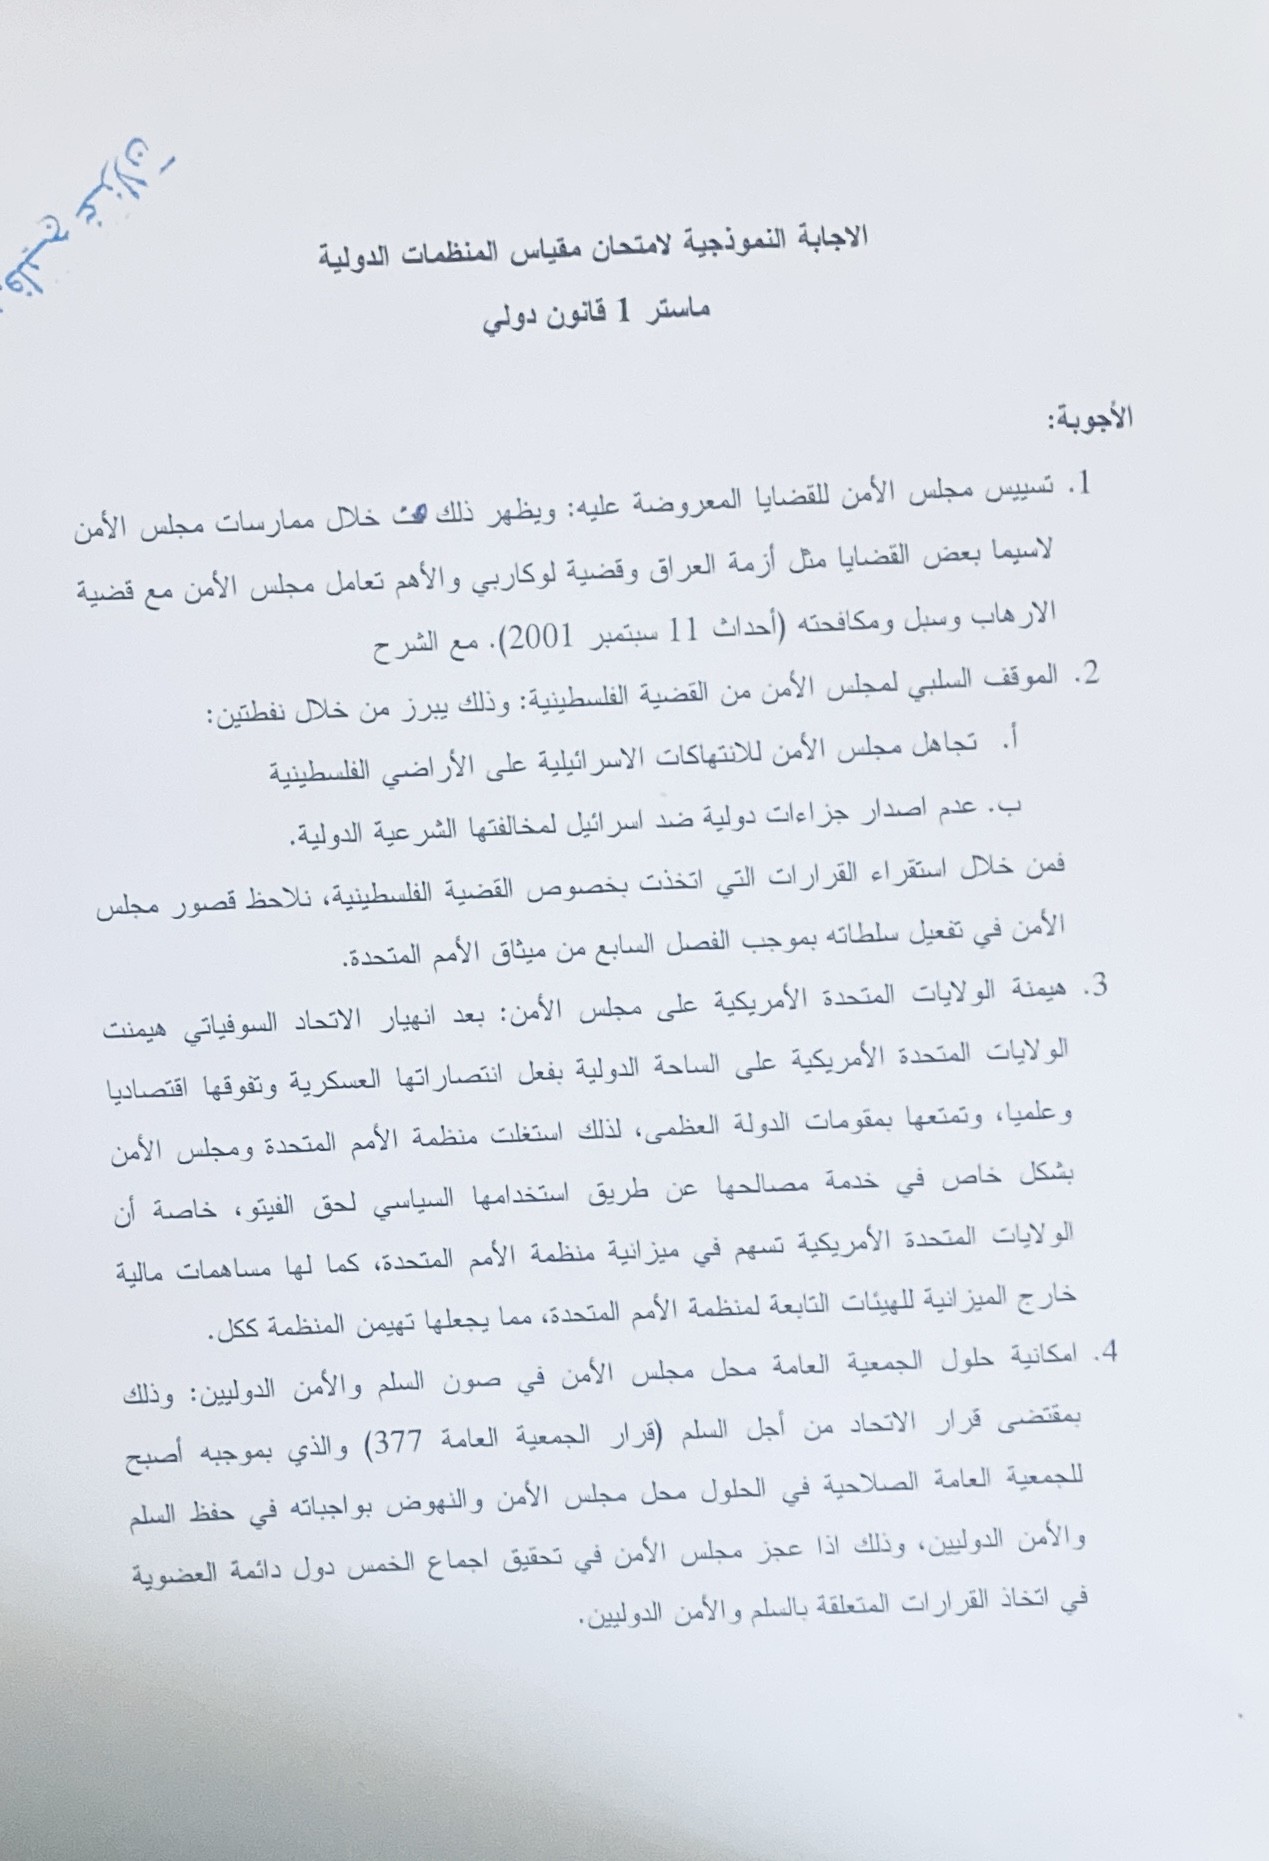 فليج غزلان
الاجابة النموذجية لامتحان مقياس المنظمات الدولية
ماستر 1 قانون دولي
الأجوبة:
1. تسييس مجلس الأمن للقضايا المعروضة عليه: ويظهر ذلك من خلال ممارسات مجلس الأمن
لاسيما بعض القضايا مثل أزمة العراق وقضية لوكاربي والأهم تعامل مجلس الأمن مع قضية
الارهاب وسبل ومكافحته (أحداث 11 سبتمبر 2001). مع الشرح
2. الموقف السلبي لمجلس الأمن من القضية الفلسطينية: وذلك يبرز من خلال نفطتين:
أ. تجاهل مجلس الأمن للانتهاكات الاسرائيلية على الأراضي الفلسطينية
ب. عدم اصدار جزاءات دولية ضد اسرائيل لمخالفتها الشرعية الدولية.
فمن خلال استقراء القرارات التي اتخذت بخصوص القضية الفلسطينية، نلاحظ قصور مجلس
الأمن في تفعيل سلطاته بموجب الفصل السابع من ميثاق الأمم المتحدة.
3. هيمنة الولايات المتحدة الأمريكية على مجلس الأمن: بعد انهيار الاتحاد السوفياتي هيمنت
الولايات المتحدة الأمريكية على الساحة الدولية بفعل انتصاراتها العسكرية وتفوقها اقتصاديا
وعلميا، وتمتعها بمقومات الدولة العظمى، لذلك استغلت منظمة الأمم المتحدة ومجلس الأمن
بشكل خاص في خدمة مصالحها عن طريق استخدامها السياسي لحق الفيتو، خاصة أن
الولايات المتحدة الأمريكية تسهم في ميزانية منظمة الأمم المتحدة، كما لها مساهمات مالية
خارج الميزانية للهيئات التابعة لمنظمة الأمم المتحدة، مما يجعلها تهيمن المنظمة ككل.
4. امكانية حلول الجمعية العامة محل مجلس الأمن في صون السلم والأمن الدوليين: وذلك
بمقتضى قرار الاتحاد من أجل السلم (قرار الجمعية العامة 377) والذي بموجبه أصبح
للجمعية العامة الصلاحية في الحلول محل مجلس الأمن والنهوض بواجباته في حفظ السلم
والأمن الدوليين، وذلك اذا عجز مجلس الأمن في تحقيق اجماع الخمس دول دائمة العضوية
في اتخاذ القرارات المتعلقة بالسلم والأمن الدوليين.